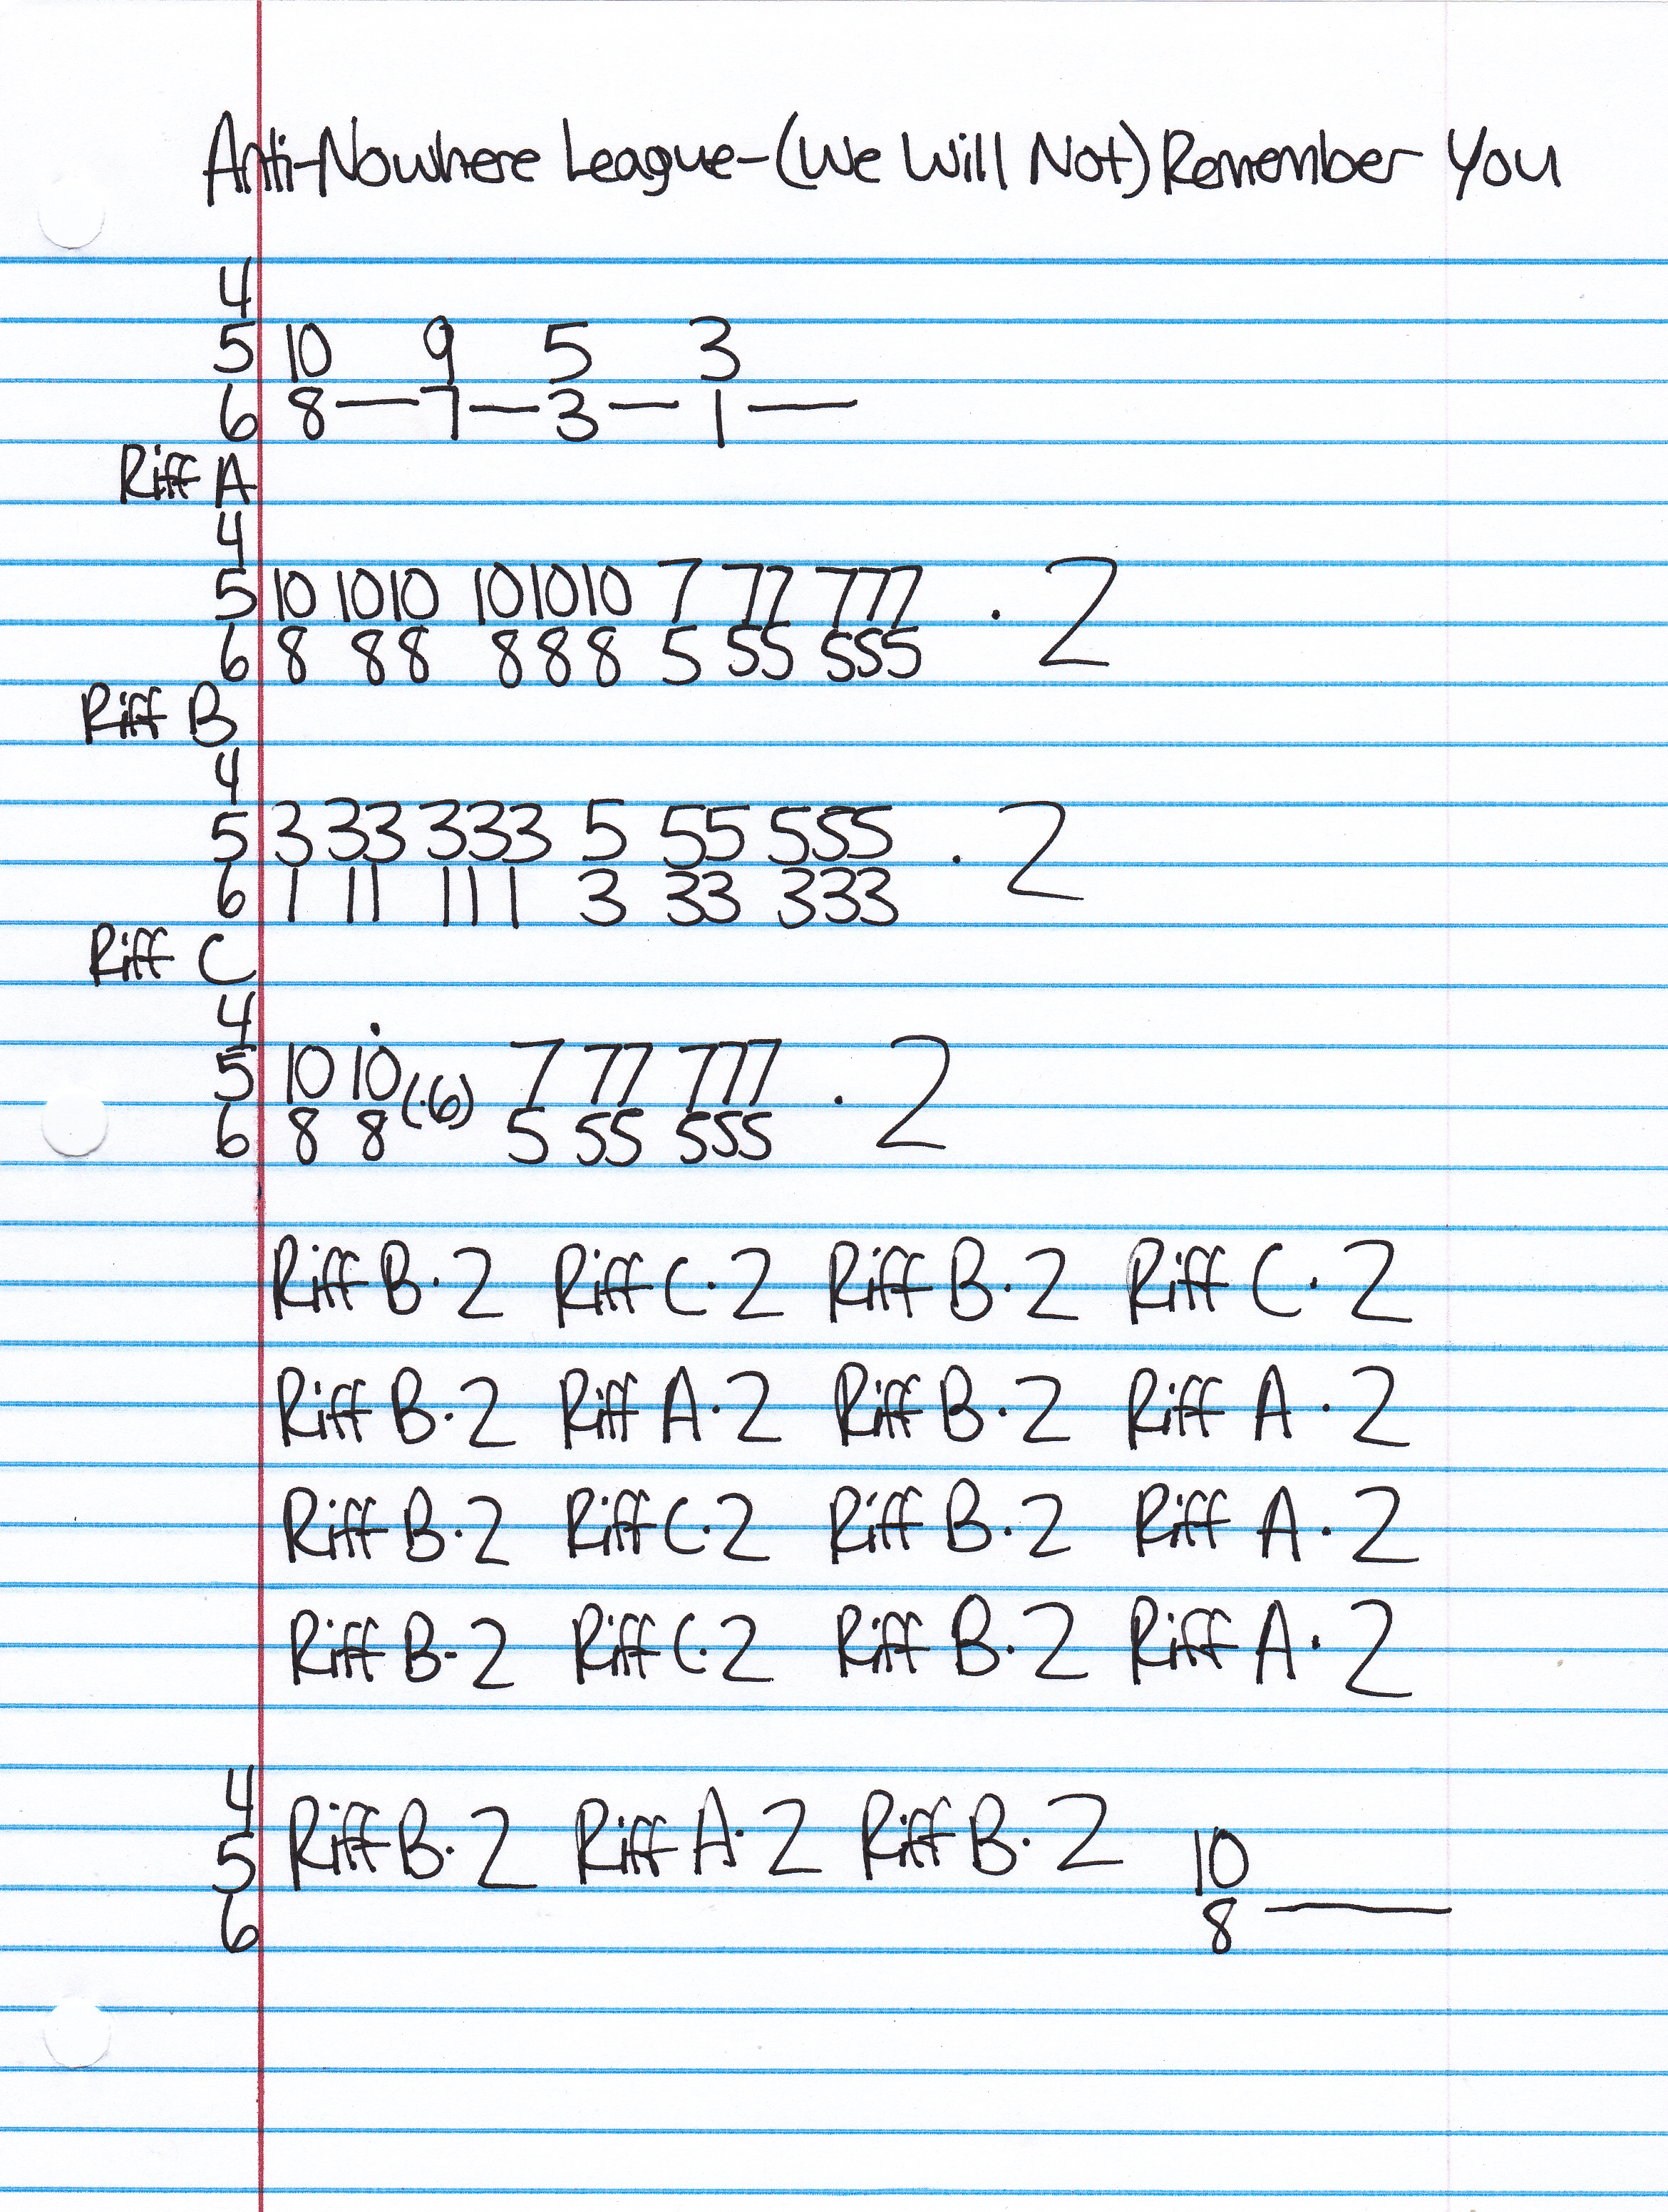 Anti-Nowhere League-(We Will Not) Remember You
4
5 10 9 5 3
6 8 — 7 — 3 — 1 —
Riff A
4
5 10 10 10 10 10 10 7 77 777 · 2
6 8 8 8 8 8 8 5 55 555
Riff B
4
5 3 33 333 5 55 555 · 2
6 1 11 111 3 33 333
Riff C
4
5 10 10 (·6) 7 77 777 · 2
6 8 8 5 55 555
Riff B · 2 Riff C · 2 Riff B · 2 Riff C · 2
Riff B · 2 Riff A · 2 Riff B · 2 Riff A · 2
Riff B · 2 Riff C · 2 Riff B · 2 Riff A · 2
Riff B · 2 Riff C · 2 Riff B · 2 Riff A · 2
4
5 Riff B · 2 Riff A · 2 Riff B · 2 10
6 8 —